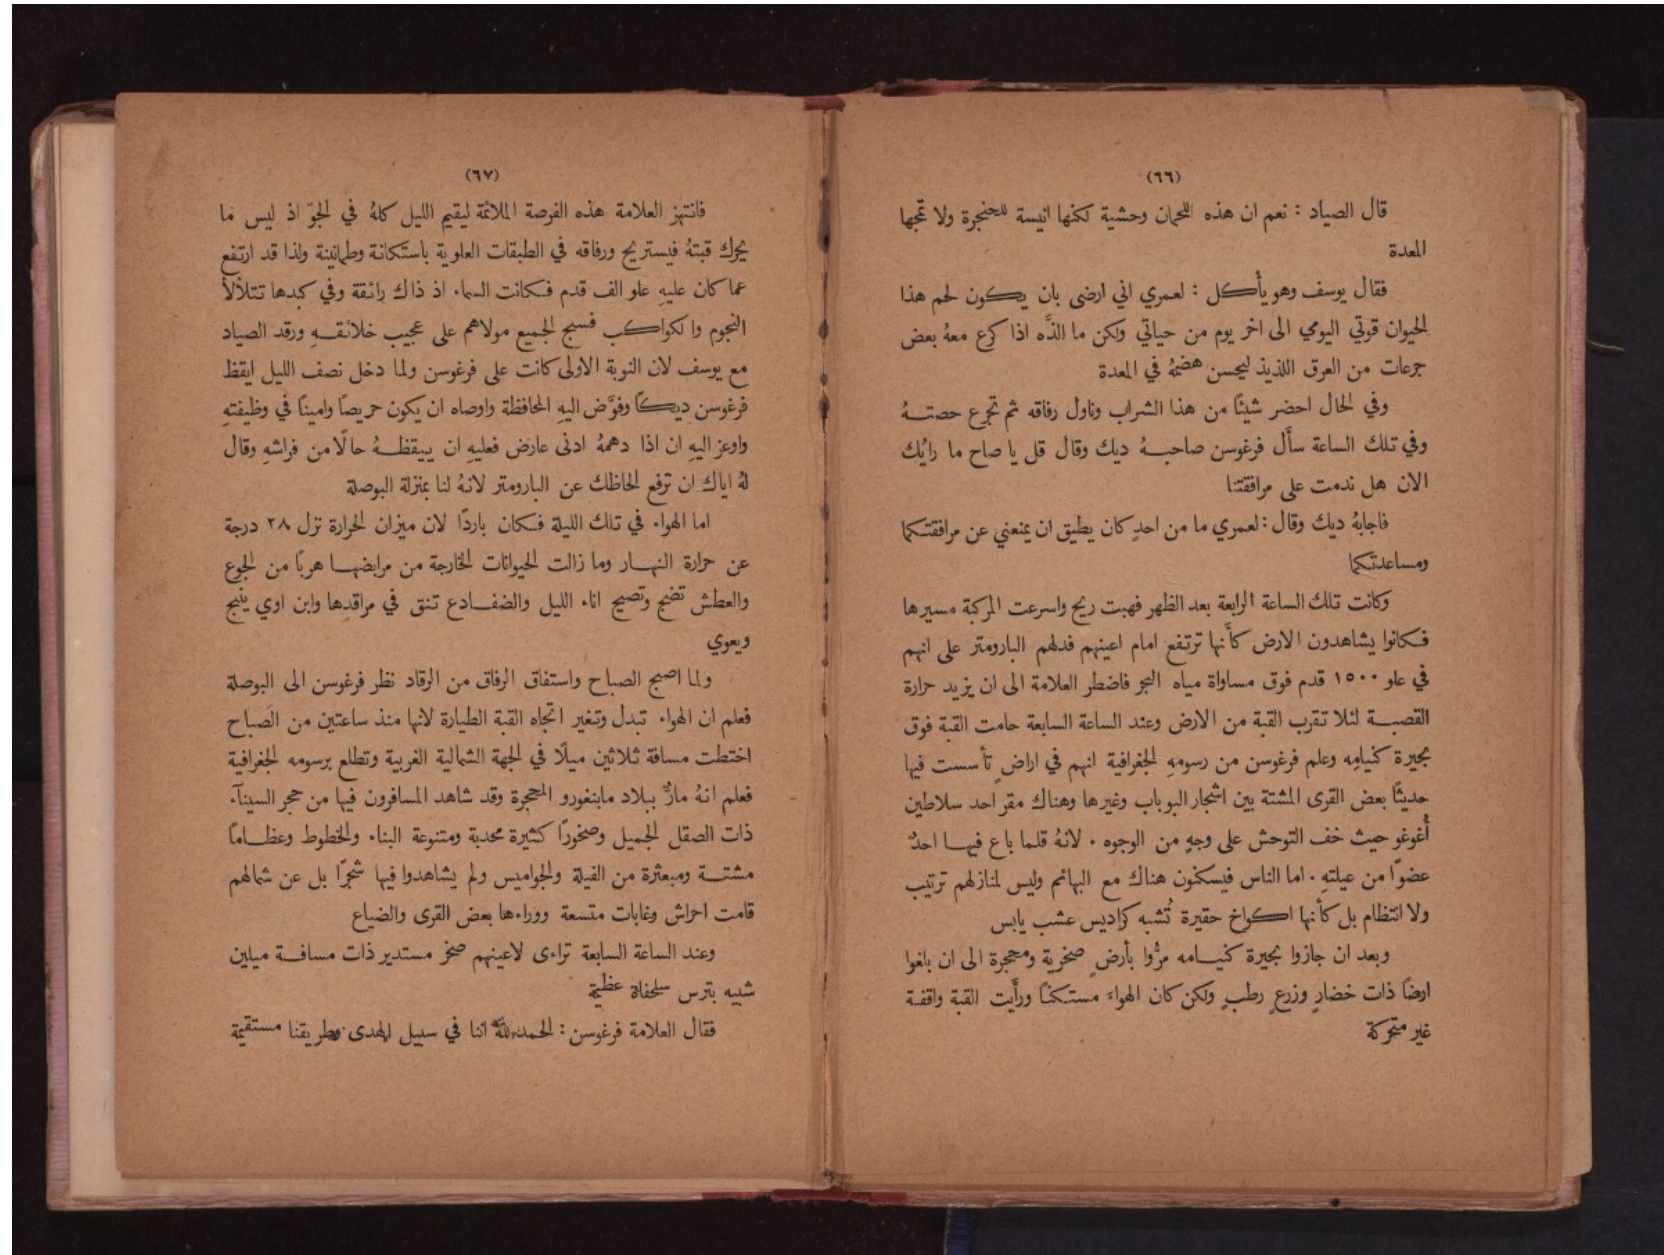 (٦٦)
قال الصياد : نعم ان هذه اللحمان وحشية لكنها انيسة للحنجرة ولا تمجها
المعدة
فقال يوسف وهو يأكل : لعمري اني ارضى بان يكون لحم هذا
الحيوان قوتي اليومي الى اخر يوم من حياتي ولكن ما الذَّه اذا كرع معهُ بعض
جرعات من العرق اللذيذ ليحسن هضمهُ في المعدة
وفي الحال احضر شيئًا من هذا الشراب وناول رفاقه ثم تجرع حصتهُ
وفي تلك الساعة سأَل فرغوسن صاحبهُ ديك وقال قل يا صاح ما رايُك
الان هل ندمت على مرافقتنا
فاجابهُ ديك وقال : لعمري ما من احدٍ كان يطيق ان يمنعني عن مرافقتكما
ومساعدتكما
وكانت تلك الساعة الرابعة بعد الظهر فهبت ريح واسرعت المركبة مسيرها
فكانوا يشاهدون الارض كأَنها ترتفع امام اعينهم فدلهم البارومتر على انهم
في علو ١٥٠٠ قدم فوق مساواة مياه البحر فاضطر العلامة الى ان يزيد حرارة
القصبة لئلا تقرب القبة من الارض وعند الساعة السابعة حامت القبة فوق
بحيرة كنيامِه وعلم فرغوسن من رسومهِ الجغرافية انهم في اراضٍ تأسست فيها
حديثًا بعض القرى المشتة بين اشجار البوباب وغيرها وهناك مقر احد سلاطين
أُغوغو حيث خف التوحش على وجهٍ من الوجوه . لانهُ قلما باع فيها احدٌ
عضوًا من عيلتهِ . اما الناس فيسكنون هناك مع البهائم وليس لمنازلهم ترتيب
ولا انتظام بل كأنها اكواخ حقيرة تُشبه كراديس عشب يابس
وبعد ان جازوا بحيرة كنيامه مرُّوا بأرضٍ صخرية ومحجرة الى ان بلغوا
ارضًا ذات خضارٍ وزرعٍ رطبٍ ولكن كان الهواءَ مستكنًا ورأَيت القبة واقفة
غير متحركة
(٦٧)
فانتهز العلامة هذه الفرصة الملائمة ليقيم الليل كلهُ في الجوّ اذ ليس ما
يحرك قبتهُ فيستريح ورفاقه في الطبقات العلوية باستكانة وطمانينة ولذا قد ارتفع
عما كان عليهِ علو الف قدم فكانت السماء اذ ذاك رائقة وفي كبدها تتلألأ
النجوم والكواكب فسبح الجميع مولاهم على عجيب خلائقهِ ورقد الصياد
مع يوسف لان النوبة الاولى كانت على فرغوسن ولما دخل نصف الليل ايقظ
فرغوسن ديكًا وفوَّض اليهِ المحافظة واوصاه ان يكون حريصًا وامينًا في وظيفتهِ
واوعز اليهِ ان اذا دهمهُ ادنى عارض فعليهِ ان ييقظهُ حالًا من فراشهِ وقال
لهُ اياك ان ترفع لحاظك عن البارومتر لانهُ لنا بمنزلة البوصلة
اما الهواء في تلك الليلة فكان باردًا لان ميزان الحرارة نزل ٢٨ درجة
عن حرارة النهار وما زالت الحيوانات الخارجة من مرابضها هربًا من الجوع
والعطش تضج وتصيح اناء الليل والضفادع تنق في مراقدها وابن اوي ينبح
ويعوي
ولما اصبح الصباح واستفاق الرفاق من الرقاد نظر فرغوسن الى البوصلة
فعلم ان الهواء تبدل وتغير اتجاه القبة الطيارة لانها منذ ساعتين من الصباح
اختطت مسافة ثلاثين ميلًا في الجهة الشمالية الغربية وتطلع برسومه الجغرافية
فعلم انهُ مارٌّ ببلاد مابنغورو المحجرة وقد شاهد المسافرون فيها من حجر السينآء
ذات الصقل الجميل وصخورًا كثيرة محدبة ومتنوعة البناء والخطوط وعظامًا
مشتة ومبعثرة من الفيلة والجواميس ولم يشاهدوا فيها شجرًا بل عن شمالهم
قامت احراش وغابات متسعة ووراءها بعض القرى والضياع
وعند الساعة السابعة تراءى لاعينهم صخر مستدير ذات مسافة ميلين
شبيه بترس سلحفاة عظيمة
فقال العلامة فرغوسن : الحمدلله اننا في سبيل الهدى وطريقنا مستقيمة